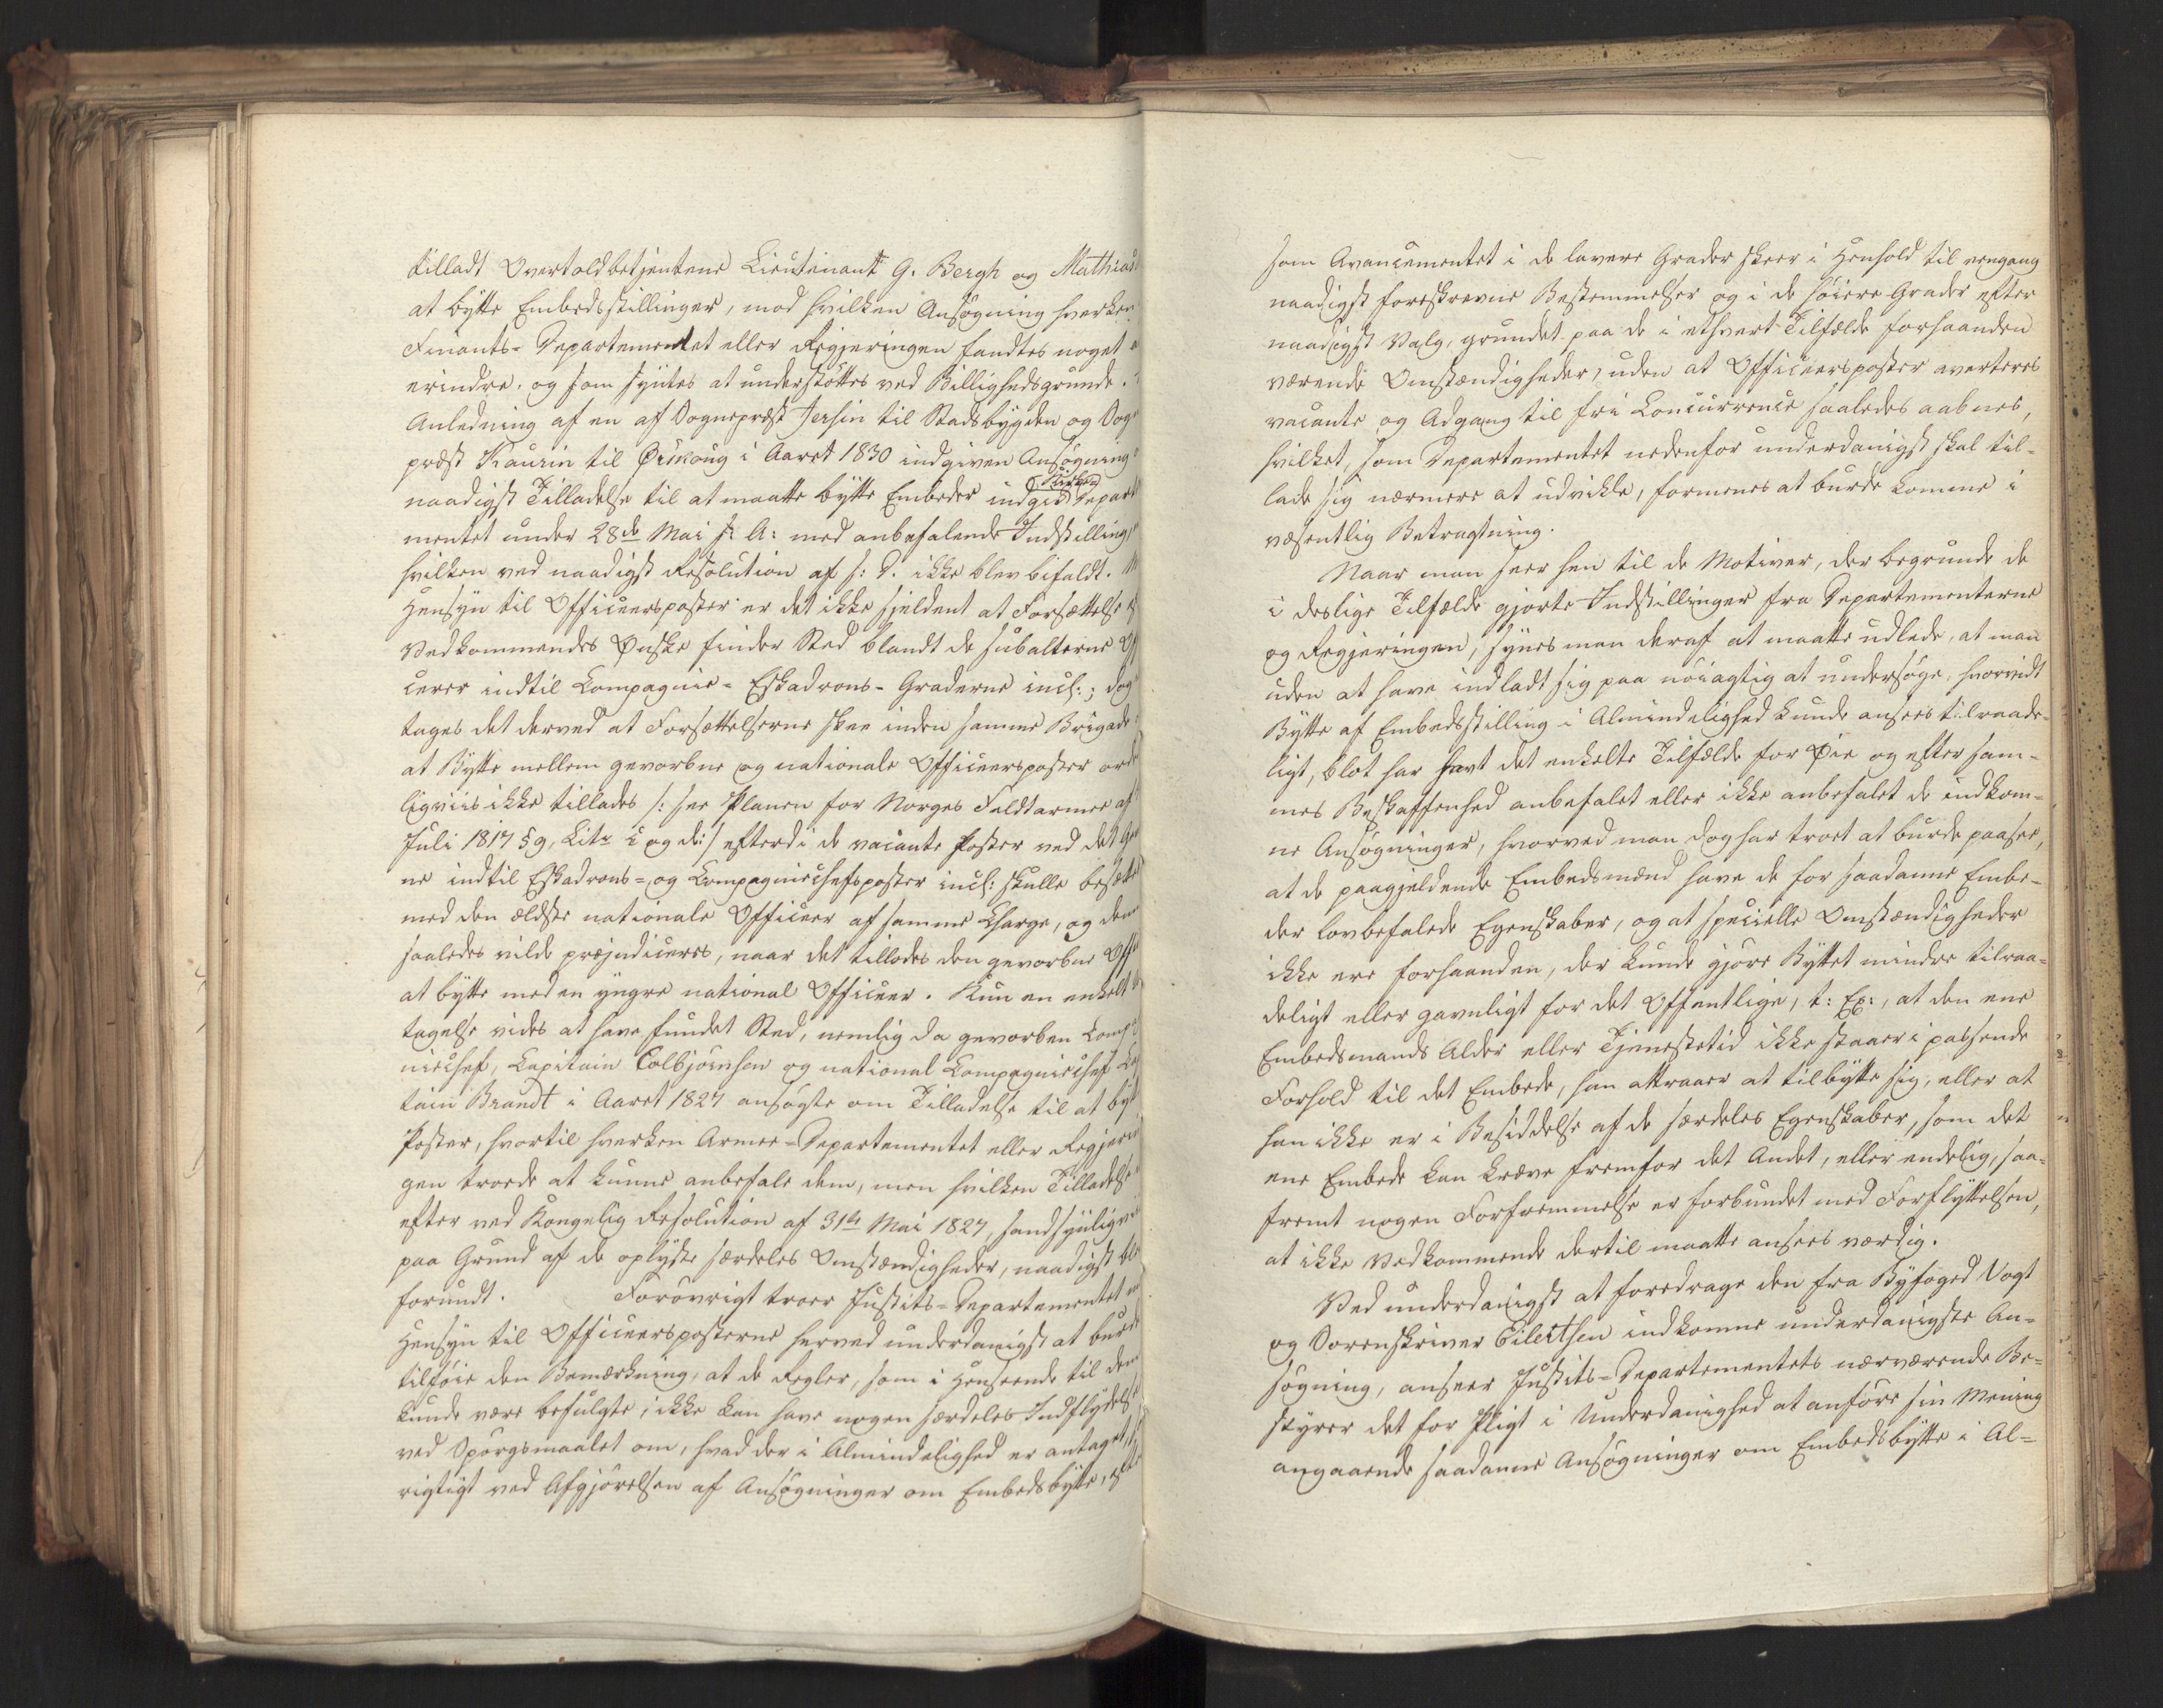 tilladt Overtoldbetjentene Lieutenant G. Bergh og Mathias
at bytte Embedsstillinger, mod hvilken Ansøgning hverken
Finants-Departementet eller Regjeringen fandtes noget
erindre, og som syntes at understøttes ved Billighedsgrunde.
Anledning af en af Sognepræst Jersin til Stadsbygden og Sog
præst Kaurin til Ørskoug i Aaret 1830 indgiven Ansøgning
naadigst Tilladelse til at maatte bytte Embeder indgik Kirke Depart
mentet under 28de Mai s: A: med anbefalende Indstilling,
hvilken ved naadigst Resolution af s: D. ikke blev bifaldt.
Hensyn til Officeersposter er det ikke sjeldent at Forsættelse
Vedkommendes Ønske finder Sted blandt de subalterne
cerer indtil Compagnie- Eskadrons-Graderne incl:; dog
tages det derved at Forsættelserne skee inden samme Brigade
at Bytte mellem gevorbne og nationale Officeersposter ord
ligviis ikke tillades /: see Planen for Norges Feldtarmee af
Juli 1817 § 9, Litr c og d:/ efterdi de vacante Poster ved det
ne indtil Eskadrons- og Compagniechefsposter incl: skulle besætte
med den ældste nationale Officeer af samme Charge, og denne
saaledes vilde præjudiceres, naar det tillodes den gevorbne Off
at bytte med en yngre national Officeer. Kun en enkelt
tagelse vides at have fundet Sted, nemlig da gevorben Comp
niechef, Capitain Colbjørnsen og national Compagniechef
tain Brandt i Aaret 1827 ansøgte om Tilladelse til at byt
Poster, hvortil hverken Armee-Departementet eller Regjerin
gen troede at kunne anbefale dem, men hvilken Tilladelse
efter ved Kongelig Resolution af 31te Mai 1827, sandsynligvi
paa Grund af de oplyste særdeles Omstændigheder, naadigst ble
forundt. Forøvrigt troer Justits-Departementet
Hensyn til Officeersposterne herved underdanigst at burde
tilføie den Bemærkning, at de Regler, som i Henseende til dem
kunde være befulgte, ikke kan have nogen særdeles Indflydelse
ved Spørgsmaalet om, hvad der i Almindelighed er antaget
rigtigt ved Afgjørelsen af Ansøgninger om Embedsbytte,
som Avancementet i de lavere Grader skeer i Henhold til eengang
naadigst foreskrevne Bestemmelser og i de høiere Grader efter
naadigst Valg, grundet paa de i ethvert Tilfælde forhaanden
værende Omstændigheder, uden at Officeersposter averteres
vacante og Adgang til fri Concurrence saaledes aabnes,
hvilket, som Departementet nedenfor underdanigst skal til-
lade sig nærmere at udvikle, formenes at burde komme i
væsentlig Betragtning.
Naar man seer hen til de Motiver, der begrunde de
i deslige Tilfælde gjorte Indstillinger fra Departementerne
og Regjeringen, synes man deraf at maatte udlede, at man
uden at have indladt sig paa nøiagtig at undersøge, hvorvidt
Bytte af Embedsstilling i Almindelighed kunde ansees tilraade-
ligt, blot har havt det enkelte Tilfælde for Øie og efter sam-
mes Beskaffenhed anbefalet eller ikke anbefalet de indkom-
ne Ansøgninger, hvorved man dog har troet at burde paasee,
at de paagjeldende Embedsmænd have de for saadanne Embe-
der lovbefalede Egenskaber, og at specielle Omstændigheder
ikke ere forhaanden, der kunde gjøre Byttet mindre tilraa-
deligt eller gavnligt for det Offentlige, t: Ex:, at den ene
Embedsmands Alder eller Tjenestetid ikke staaer i passende
Forhold til det Embede, han attraaer at tilbytte sig, eller at
han ikke er i Besiddelse af de særdeles Egenskaber, som det
ene Embede kan kræve fremfor det Andet, eller endelig, saa-
fremt nogen Forfremmelse er forbundet med Forflyttelsen,
at ikke Vedkommende dertil maatte ansees værdig.
Ved underdanigst at foredrage den fra Byfoged Vogt
og Sorenskriver Eilertsen indkomne underdanigste An-
søgning, anseer Justits-Departementets nærværende Be-
styrer det for Pligt i Underdanighed at anføre sin Mening
angaaende saadanne Ansøgninger om Embedsbytte i Al-